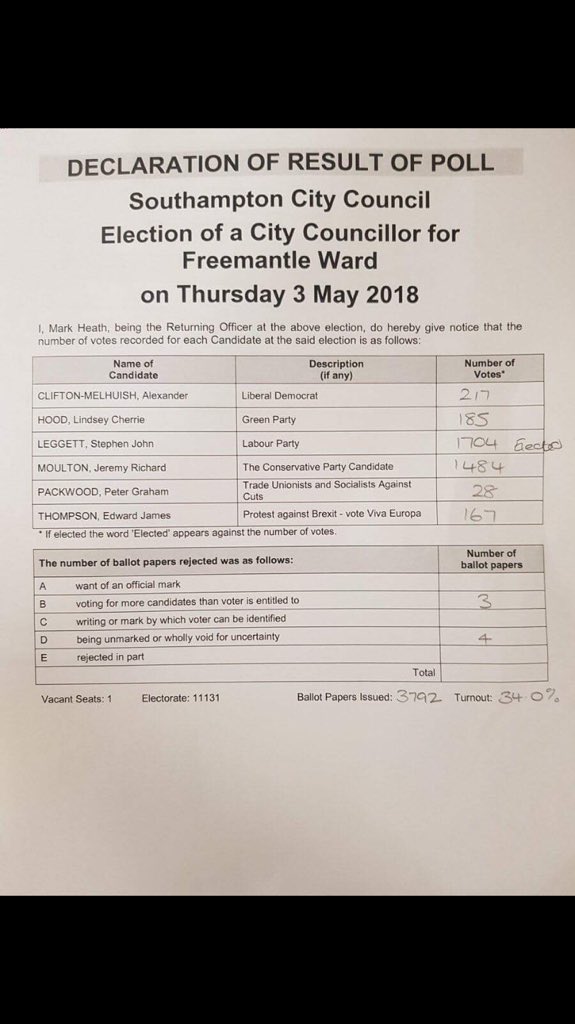 DECLARATION OF RESULT OF POLL
Southampton City Council
Election of a City Councillor for
Freemantle Ward
on Thursday 3 May 2018
I, Mark Heath, being the Returning Officer at the above election, do hereby give notice that the
number of votes recorded for each Candidate at the said election is as follows:
Name of Candidate Description (if any) Number of Votes*
CLIFTON-MELHUISH, Alexander Liberal Democrat 217
HOOD, Lindsey Cherrie Green Party 185
LEGGETT, Stephen John Labour Party 1704 Elected
MOULTON, Jeremy Richard The Conservative Party Candidate 1484
PACKWOOD, Peter Graham Trade Unionists and Socialists Against Cuts 28
THOMPSON, Edward James Protest against Brexit - vote Viva Europa 167
* If elected the word 'Elected' appears against the number of votes.
The number of ballot papers rejected was as follows: Number of ballot papers
A want of an official mark
B voting for more candidates than voter is entitled to 3
C writing or mark by which voter can be identified
D being unmarked or wholly void for uncertainty 4
E rejected in part
Total
Vacant Seats: 1 Electorate: 11131 Ballot Papers Issued: 3792 Turnout: 34.0%